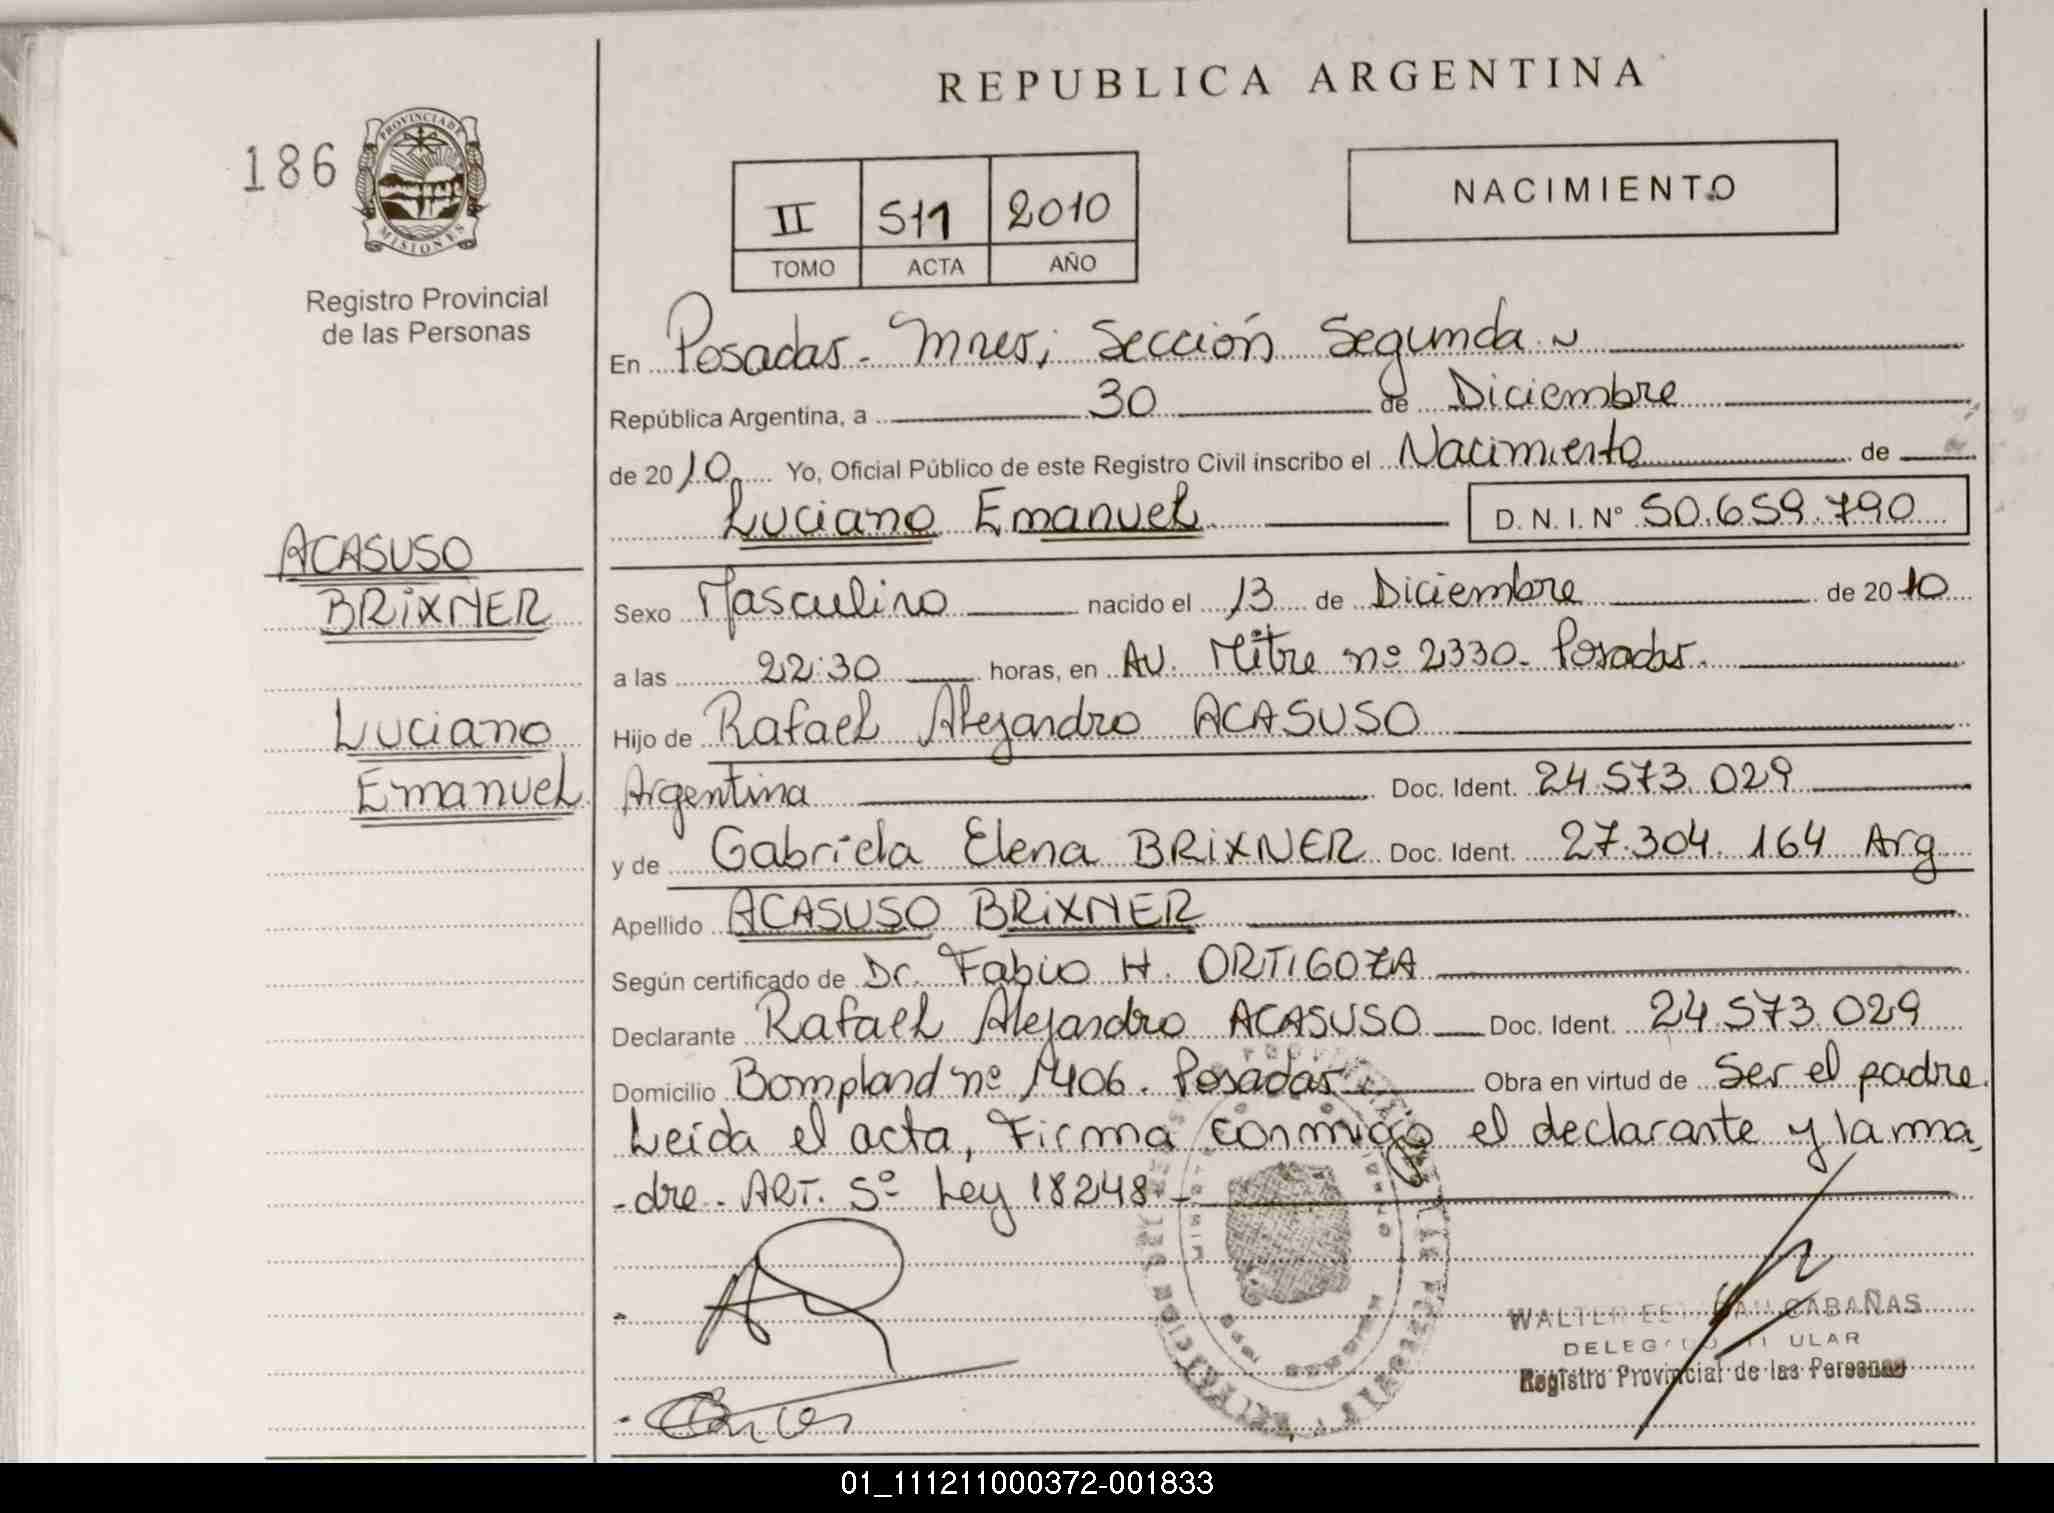 REPUBLICA ARGENTINA
186
PROVINCIA DE
MISIONES
Registro Provincial
de las Personas
NACIMIENTO
II 511 2010
TOMO ACTA AÑO
En Posadas - Mnes; Sección Segunda
República Argentina, a 30 de Diciembre
de 2010 Yo, Oficial Público de este Registro Civil inscribo el Nacimiento de
Luciano Emanuel D. N. I. Nº 50.659.790
ACASUSO
BRiXNER
Luciano
Emanuel
Sexo Masculino nacido el 13 de Diciembre de 2010
a las 22:30 horas, en AV. Mitre nº 2330 - Posadas.
Hijo de Rafael Alejandro ACASUSO
Argentina Doc. Ident. 24.573.029
y de Gabriela Elena BRiXNER Doc. Ident. 27.304.164 Arg
Apellido ACASUSO BRiXNER
Según certificado de Dr. Fabio H. ORTIGOZA
Declarante Rafael Alejandro ACASUSO Doc. Ident. 24.573.029
Domicilio Bompland nº 1406. Posadas Obra en virtud de Ser el padre.
Leída el acta, Firma conmigo el declarante y la ma
-dre - ART. 5º Ley 18248 -
WALTER CABAÑAS
Registro Provincial de las Personas
01_111211000372-001833